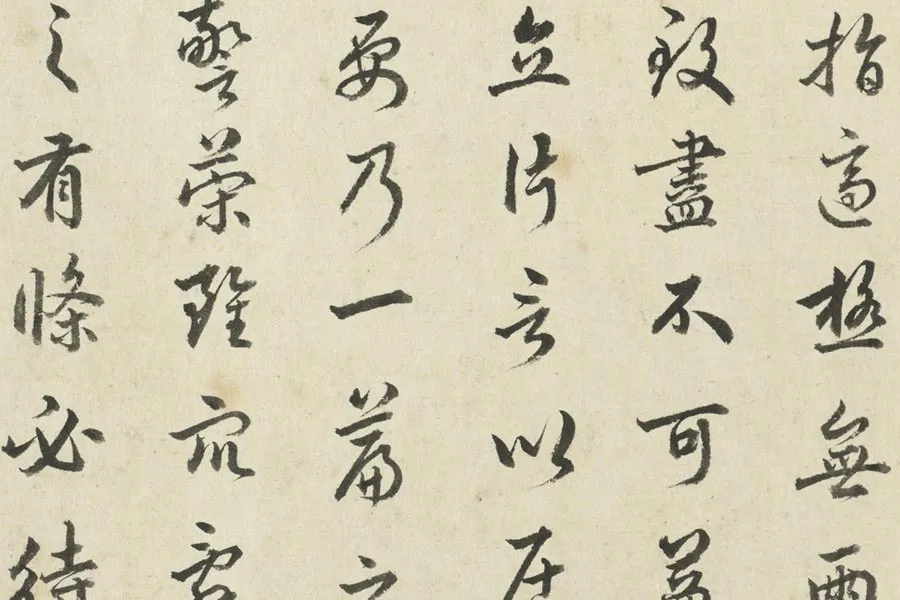 指適極無兩
致盡不可益
立片言以居
要乃一篇之
警策雖眾辭
之有條必待